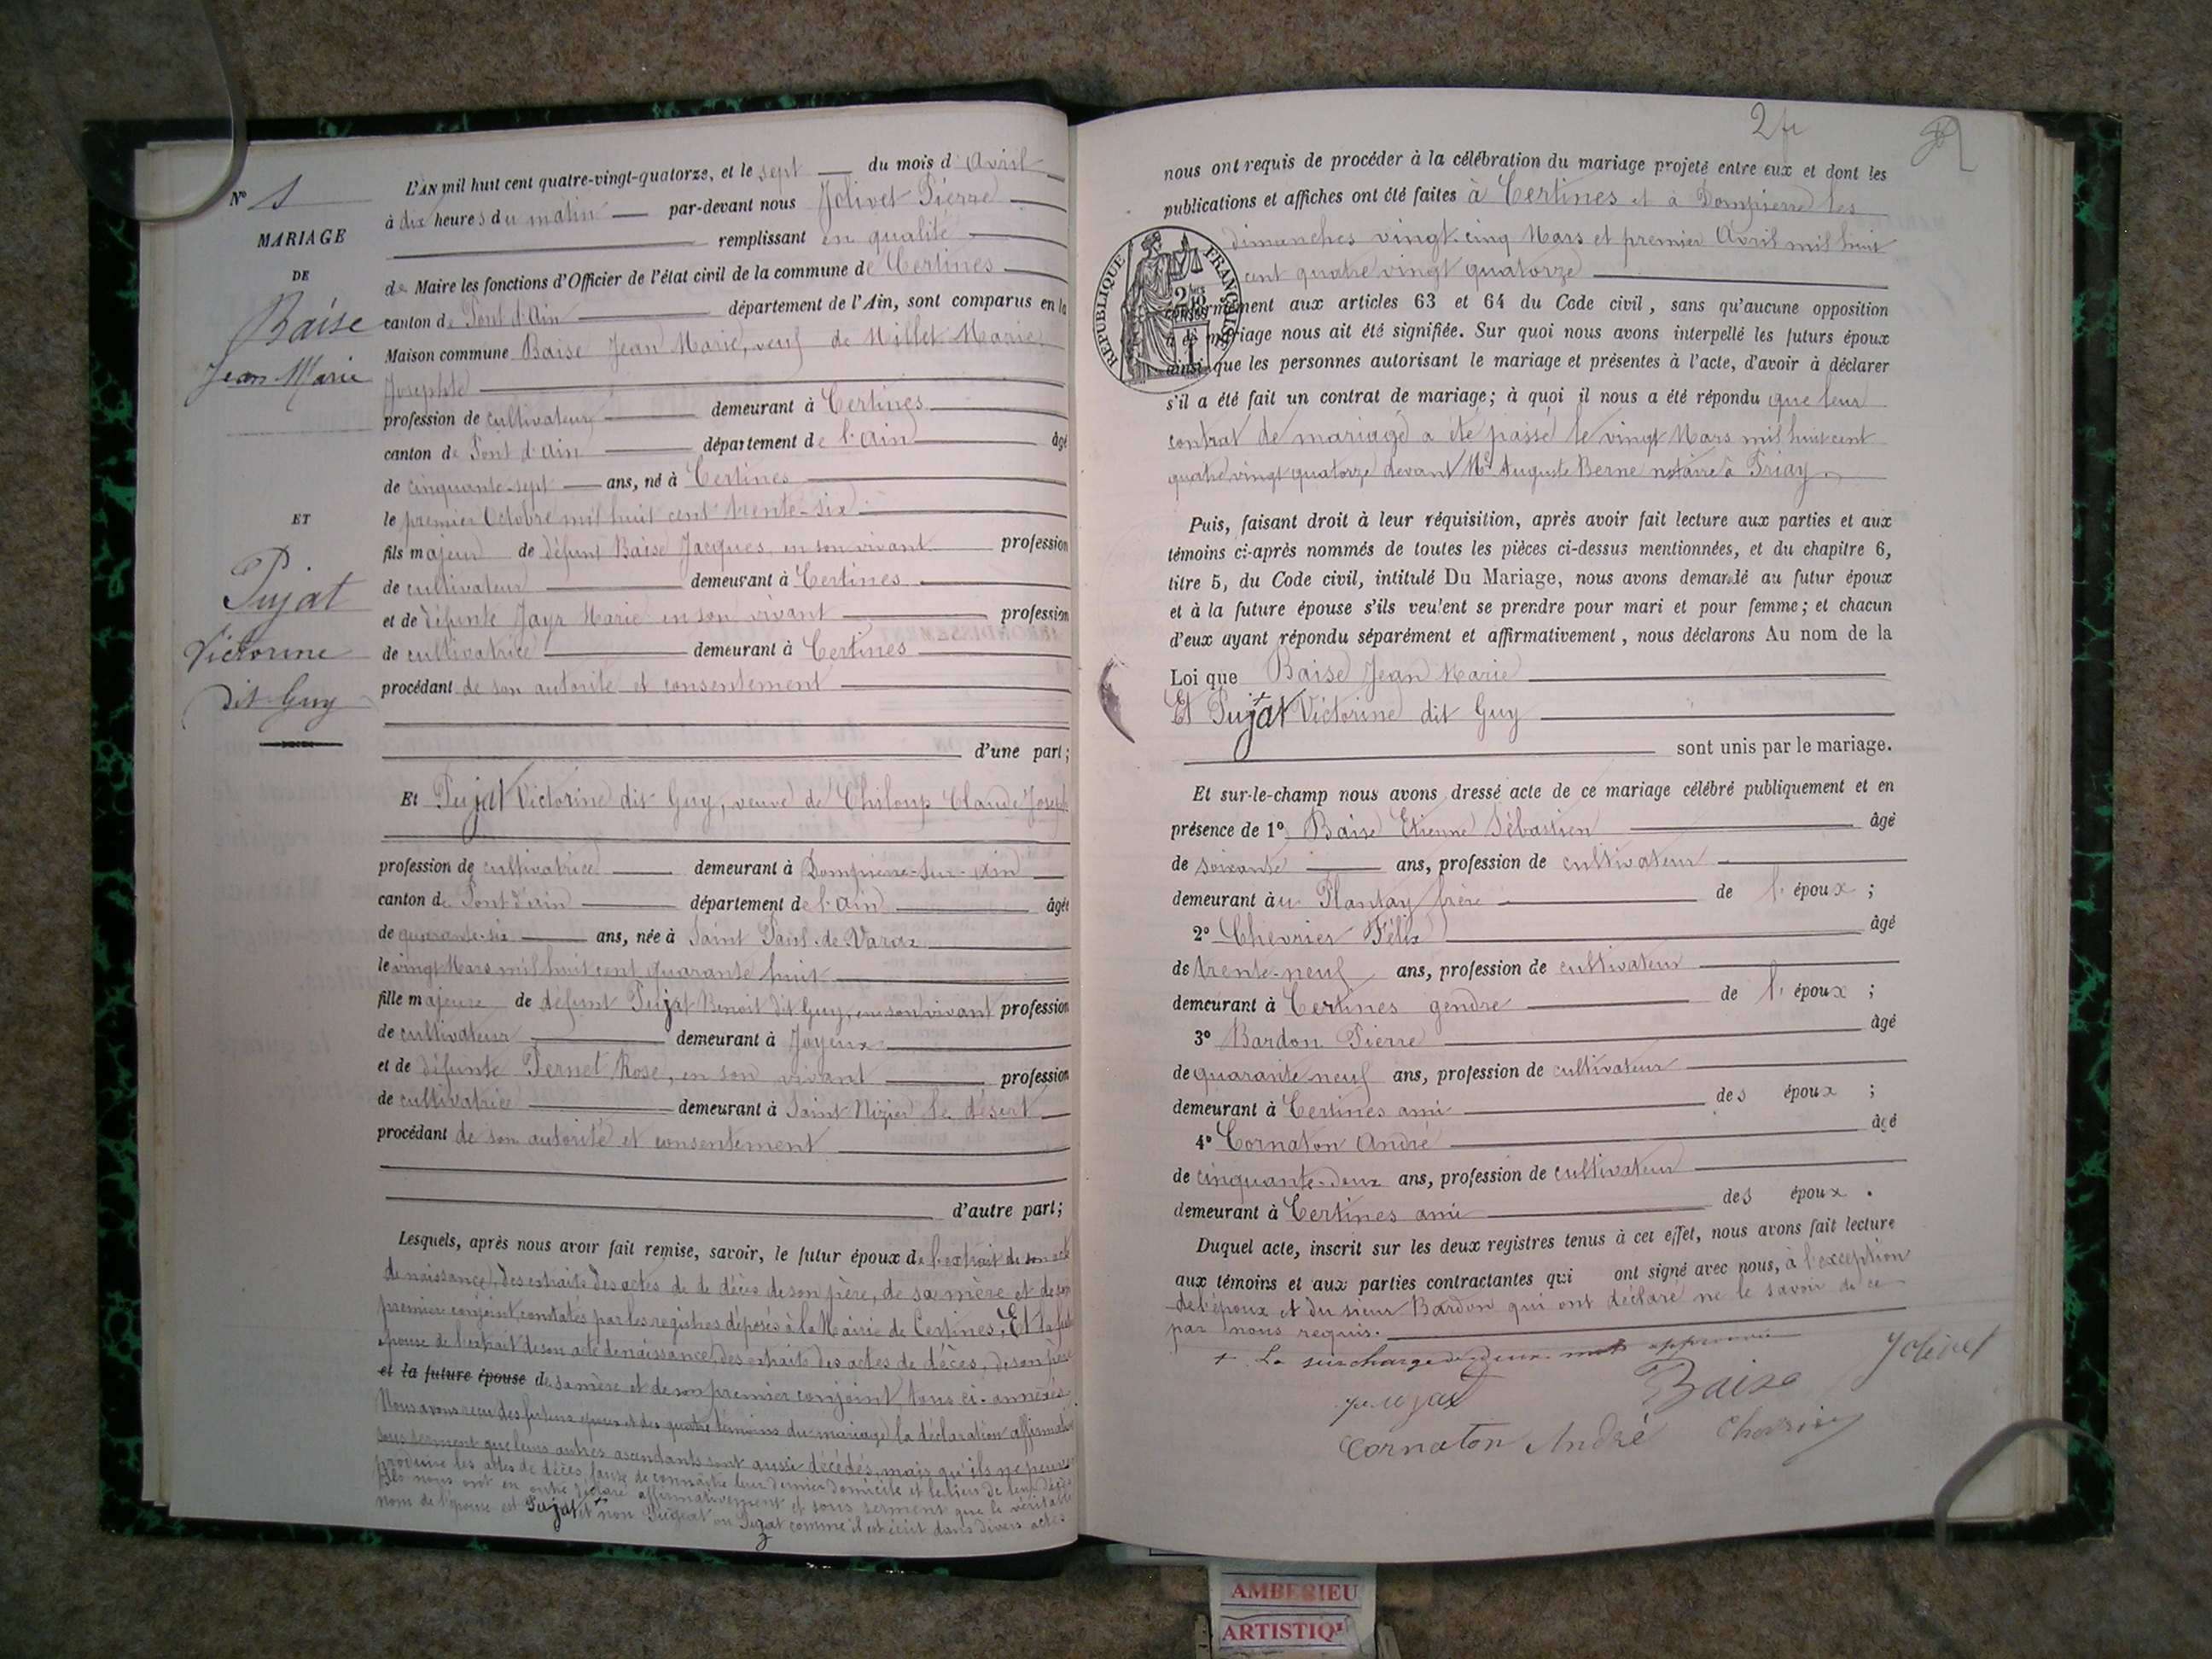 N° 1
MARIAGE
DE
Baise
Jean Marie
ET
Pujat
Victorine
dit Guy
L'AN mil huit cent quatre-vingt-quatorze, et le sept du mois d'Avril
à dix heures du matin par-devant nous Jolivet Pierre
remplissant en qualité
de Maire les fonctions d'Officier de l'état civil de la commune de Certines
canton de Pont d'Ain département de l'Ain, sont comparus en la
Maison commune Baise Jean Marie, veuf de Millet Marie
Josephte
profession de cultivateur demeurant à Certines
canton de Pont d'Ain département de l'Ain âgé
de cinquante-sept ans, né à Certines
le premier Octobre mil huit cent trente-six
fils majeur de défunt Baise Jacques, en son vivant profession
de cultivateur demeurant à Certines
et de défunte Jayr Marie en son vivant profession
de cultivatrice demeurant à Certines
procédant de son autorité et consentement
d'une part;
Et Pujat Victorine dit Guy, veuve de Chiloup Claude Joseph
profession de cultivatrice demeurant à Dompierre-sur-Ain
canton de Pont d'Ain département de l'Ain âgée
de quarante-six ans, née à Saint Paul de Varax
le vingt Mars mil huit cent quarante huit
fille majeure de défunt Pujat Benoit dit Guy, en son vivant profession
de cultivateur demeurant à Joyeux
et de défunte Pernet Rose, en son vivant profession
de cultivatrice demeurant à Saint Nizier le désert
procédant de son autorité et consentement
d'autre part;
Lesquels, après nous avoir fait remise, savoir, le futur époux de l'extrait de son acte
de naissance, des extraits des actes de de décès de son père, de sa mère et de son
premier conjoint, constatés par les registres déposés à la Mairie de Certines, Et la future
épouse de l'extrait de son acte de naissance, des extraits des actes de décès, de son père
et la future épouse de sa mère et de son premier conjoint, tous ci-annexés
Nous avons reçu des futurs époux et des quatre témoins du mariage la déclaration affirmative
sous serment que leurs autres ascendants sont aussi décédés, mais qu'ils ne peuvent
produire les actes de décès, faute de connaître leur dernier domicile et le lieu de leur décès
Ils nous ont en outre déclaré affirmativement et sous serment que le véritable
nom de l'épouse est Pujat et non Pugeat ou Puzat comme il est écrit dans divers actes
2 fr
nous ont requis de procéder à la célébration du mariage projeté entre eux et dont les
publications et affiches ont été faites à Certines et à Dompierre les
dimanches vingt-cinq Mars et premier Avril mil huit
cent quatre vingt quatorze
RÉPUBLIQUE FRANÇAISE
conformément aux articles 63 et 64 du Code civil, sans qu'aucune opposition
à ce mariage nous ait été signifiée. Sur quoi nous avons interpellé les futurs époux
ainsi que les personnes autorisant le mariage et présentes à l'acte, d'avoir à déclarer
s'il a été fait un contrat de mariage; à quoi il nous a été répondu que leur
contrat de mariage a été passé le vingt Mars mil huit cent
quatre vingt quatorze devant Me Auguste Berne notaire à Priay
Puis, faisant droit à leur réquisition, après avoir fait lecture aux parties et aux
témoins ci-après nommés de toutes les pièces ci-dessus mentionnées, et du chapitre 6,
titre 5, du Code civil, intitulé Du Mariage, nous avons demandé au futur époux
et à la future épouse s'ils veulent se prendre pour mari et pour femme; et chacun
d'eux ayant répondu séparément et affirmativement, nous déclarons Au nom de la
Loi que Baise Jean Marie
Et Pujat Victorine dit Guy
sont unis par le mariage.
Et sur-le-champ nous avons dressé acte de ce mariage célébré publiquement et en
présence de 1° Baise Etienne Sébastien âgé
de soixante ans, profession de cultivateur
demeurant au Plantay frère de l'époux;
2° Chevrier Félix âgé
de trente-neuf ans, profession de cultivateur
demeurant à Certines gendre de l'époux;
3° Bardon Pierre âgé
de quarante neuf ans, profession de cultivateur
demeurant à Certines ami des époux;
4° Cornaton André âgé
de cinquante-deux ans, profession de cultivateur
demeurant à Certines ami des époux.
Duquel acte, inscrit sur les deux registres tenus à cet effet, nous avons fait lecture
aux témoins et aux parties contractantes qui ont signé avec nous, à l'exception
de l'époux et du sieur Bardon qui ont déclaré ne le savoir de ce
par nous requis.
+ La surcharge de deux mots approuvée
Jolivet
pujat
Baise
Cornaton André
Chevrier
AMBERIEU
ARTISTIQ